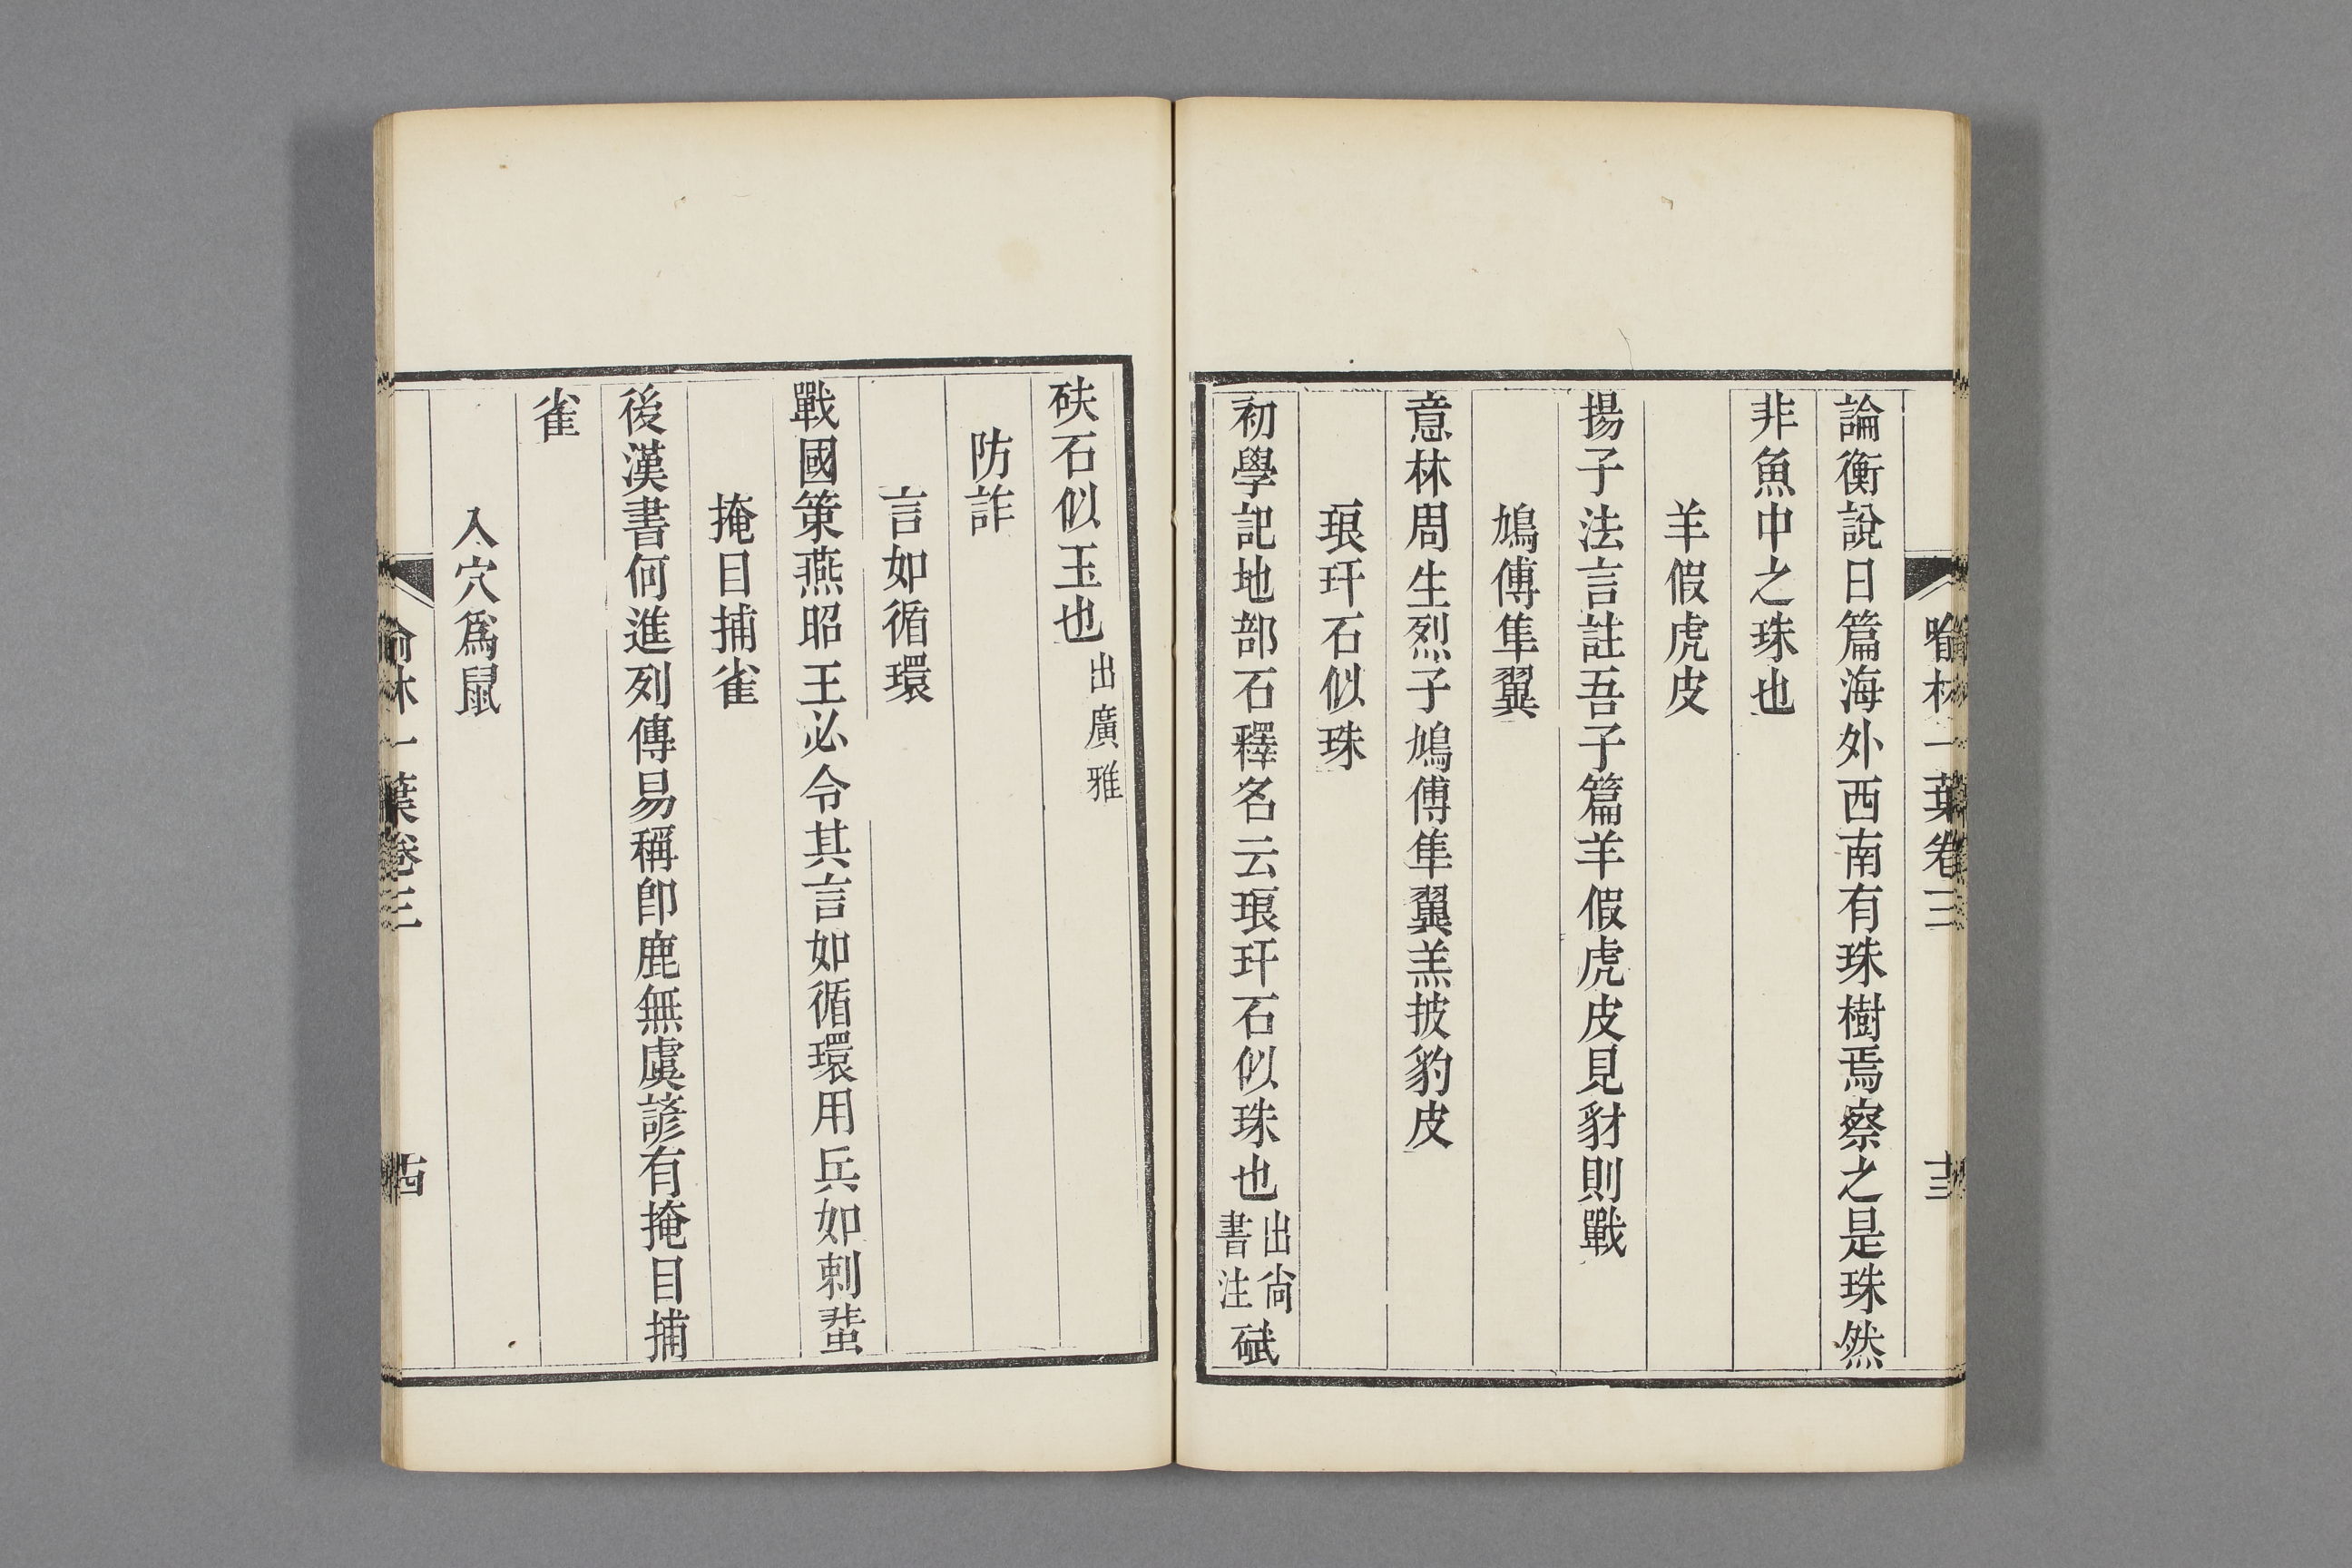 喻林一葉卷三
十三
論衡說日篇海外西南有珠樹焉察之是珠然
非魚中之珠也
羊假虎皮
揚子法言註吾子篇羊假虎皮見豺則戰
鳩傅隼翼
意林周生烈子鳩傅隼翼羔披豹皮
琅玕石似珠
初學記地部石釋名云琅玕石似珠也出尚書注碔
砆石似玉也出廣雅
防詐
言如循環
戰國策燕昭王必令其言如循環用兵如刺蜚
掩目捕雀
後漢書何進列傳易稱卽鹿無虞諺有掩目捕
雀
入穴爲鼠
喻林一葉卷三
十四